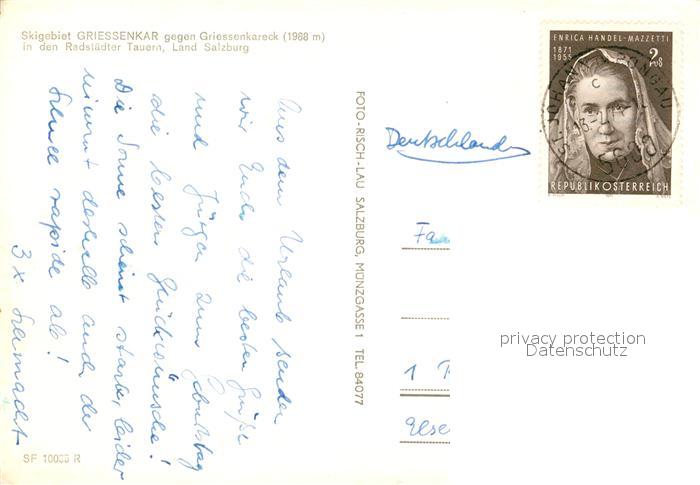 Skigebiet GRIESSENKAR gegen Griessenkareck (1988 m)
in den Radstädter Tauern, Land Salzburg
Aus dem Urlaub senden
wir Euch die besten Grüße
und Jürgen zum Geburtstag
die besten Glückwünsche!
Die Sonne scheint stark, leider
nimmt deshalb auch der
Schnee rapide ab!
3 x
SF 10036 R
FOTO-RISCH-LAU SALZBURG, MÜNZGASSE 1 TEL. 84077
ENRICA HANDEL-MAZZETTI
1871
1955
2
REPUBLIK ÖSTERREICH
ST. JOHANN IM PONGAU
C
5600
Deutschland
Fa
1
privacy protection
Datenschutz